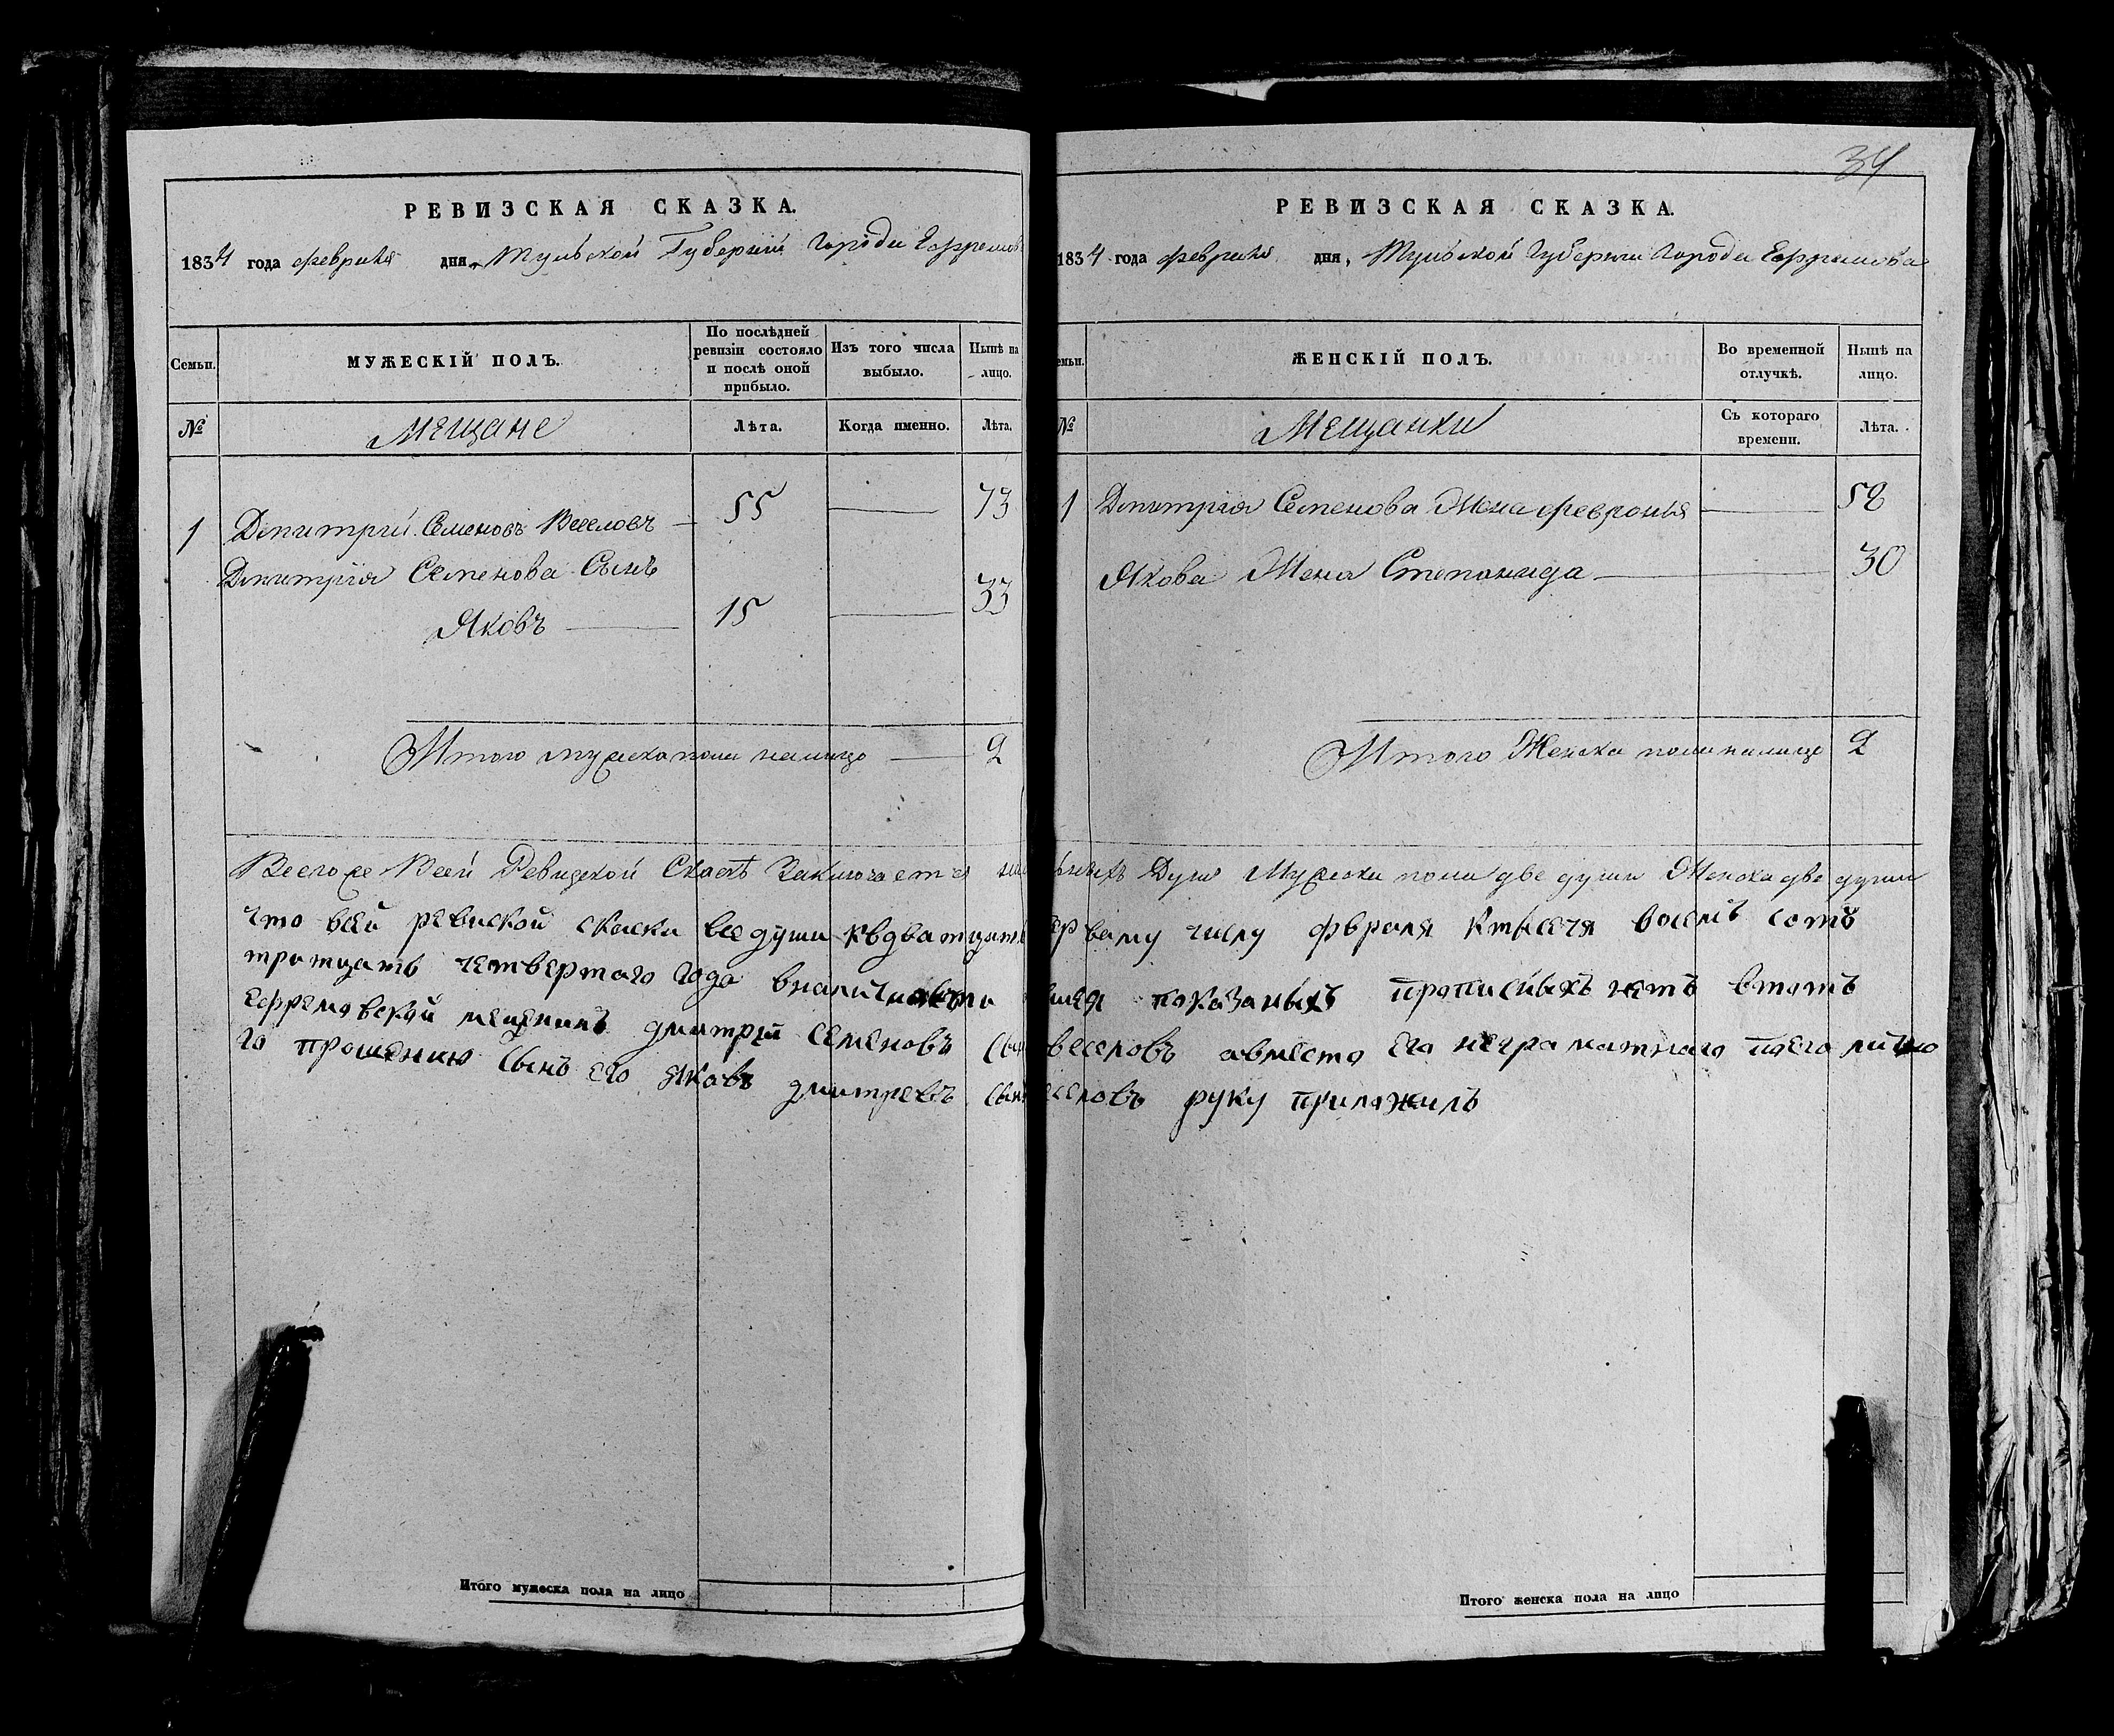 34
РЕВИЗСКАЯ СКАЗКА.
1834 года февраля дня, Тульской Губернии Города Ефремов
Семьи.
МУЖЕСКІЙ ПОЛЪ.
По послѣдней ревизіи состояло и послѣ оной прибыло.
Изъ того числа выбыло.
Нынѣ на лицо.
№
Мещане
Лѣта.
Когда именно.
Лѣта.
1 Дмитрий Семеновъ Веселовъ 55 73
Дмитрия Семенова Сынъ
Яковъ 15 33
Итого мужска пола налицо 2
РЕВИЗСКАЯ СКАЗКА.
1834 года февраля дня, Тульской Губернии Города Ефремова
емьи.
ЖЕНСКІЙ ПОЛЪ.
Во временной отлучкѣ.
Нынѣ на лицо.
№
Мещанки
Съ котораго времени.
Лѣта.
1 Дмитрия Семенова Жена Февронья 58
Якова Жена Степанида 30
Итого Женска пола налицо 2
Всего се Всей Ревиской Сказке Заключается Душъ Мужска пола две души Женска две души
что всей ревиской скаски все души квдватцать ервому числу февраля ктысеча восемъ сотъ
тритцать четвертого года показаныхъ прописныхъ нетъ втомъ
ефремовской мещенинъ дмитрий семеновъ сын веселовъ авместо его неграматнаго поего лично
го прошению сынъ его яковъ дмитревъ сын еселовъ руку приложилъ
Итого мужеска пола на лицо
Итого женска пола на лицо